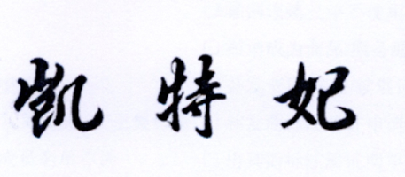 凯特妃